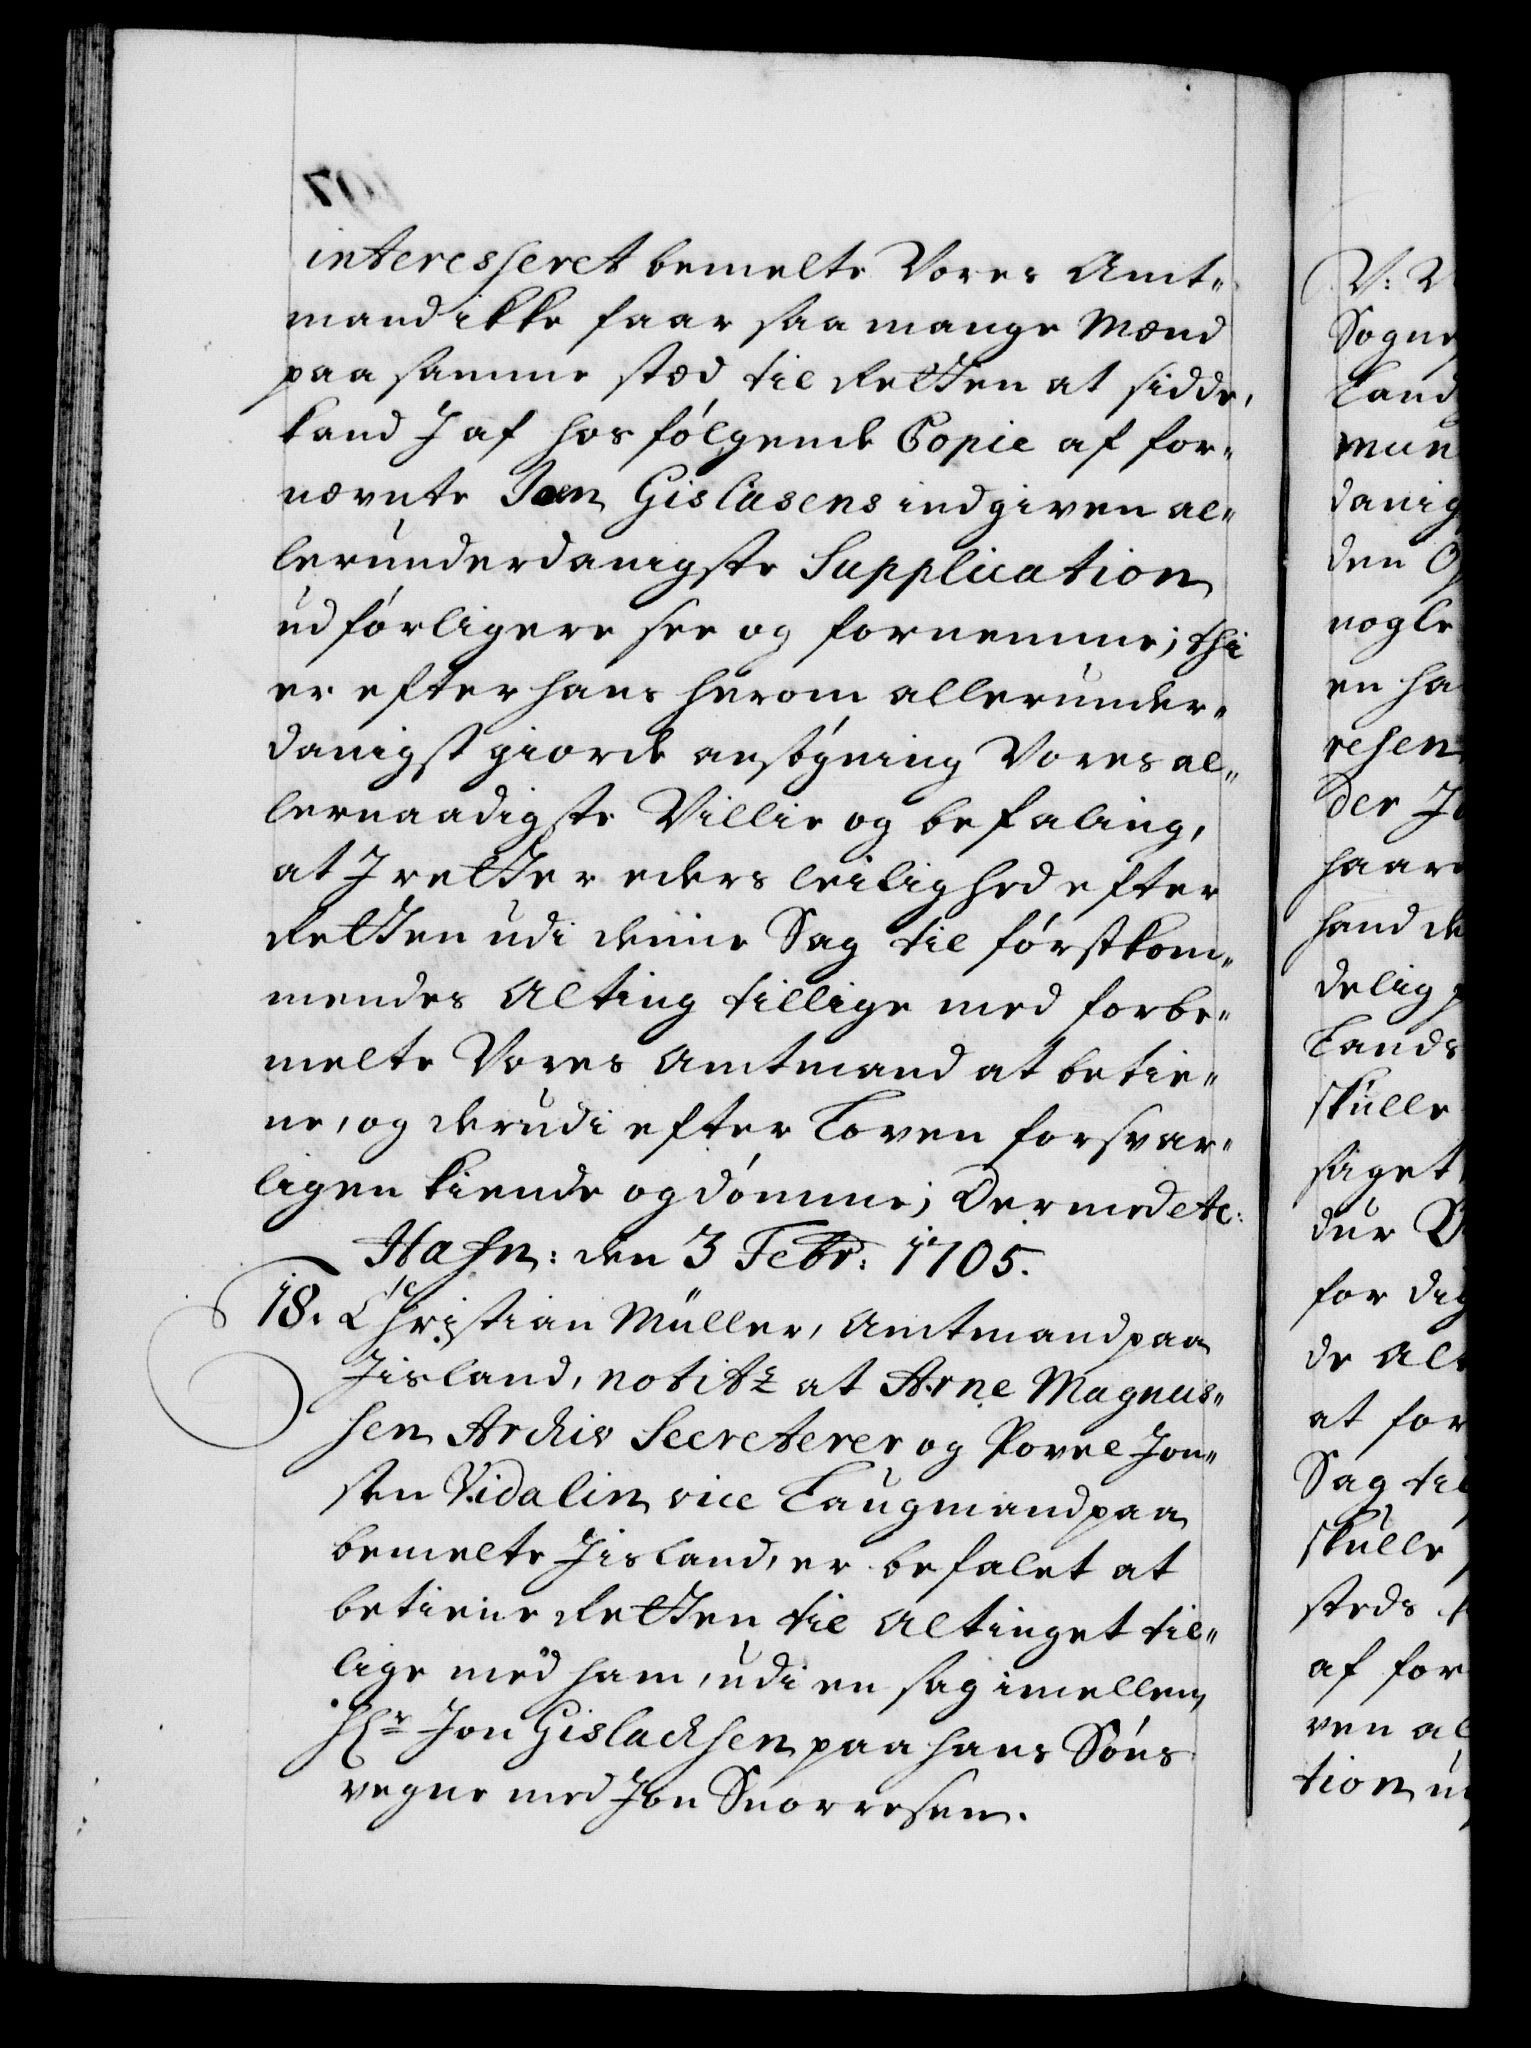 interesseret bemelte Vores Amt„
mand ikke faar saa mange Mænd
paa samme stæd til Retten at sidde,
kand I af hosfølgende Copie af for„
nævnte Jon Gislasens indgiven al„
lerunderdanigste Supplication
udførligere see og fornemme; thi
er efter hans herom allerunder„
danigst giorde ansøgning Vores al„
lernaadigste Villie og befaling,
at I retter eders leilighed efter
Retten udi denne Sag til førstkom„
mendes Alting tillige med forbe„
melte Vores Amtmand at betie„
ne, og derudi efter Loven forsvar„
ligen kiende og dømme; Dermed etc:
Hafn: den 3 Febr: 1705.
18. Christian Müller, Amtmand paa
Jisland, notits at Arne Magnus„
sen Archiv Secreterer og Povel Jon„
sen Vidalin vice Laugmand paa
bemelte Jisland, er befalet at
betiene Retten til Altinget til„
lige med ham, udi en sag imellem
Hr Jon Gislachsen paa hans Søns
vegne med Jon Snorresen.
V: V
Sogne
Land
mun
danig
den O
nogle
en ha
resen
der J
haar
hand de
delig
Lands
skulle
saget
dur
for dig
de Al
at for
Sag til
skulle
steds
af for
ven al
tion u